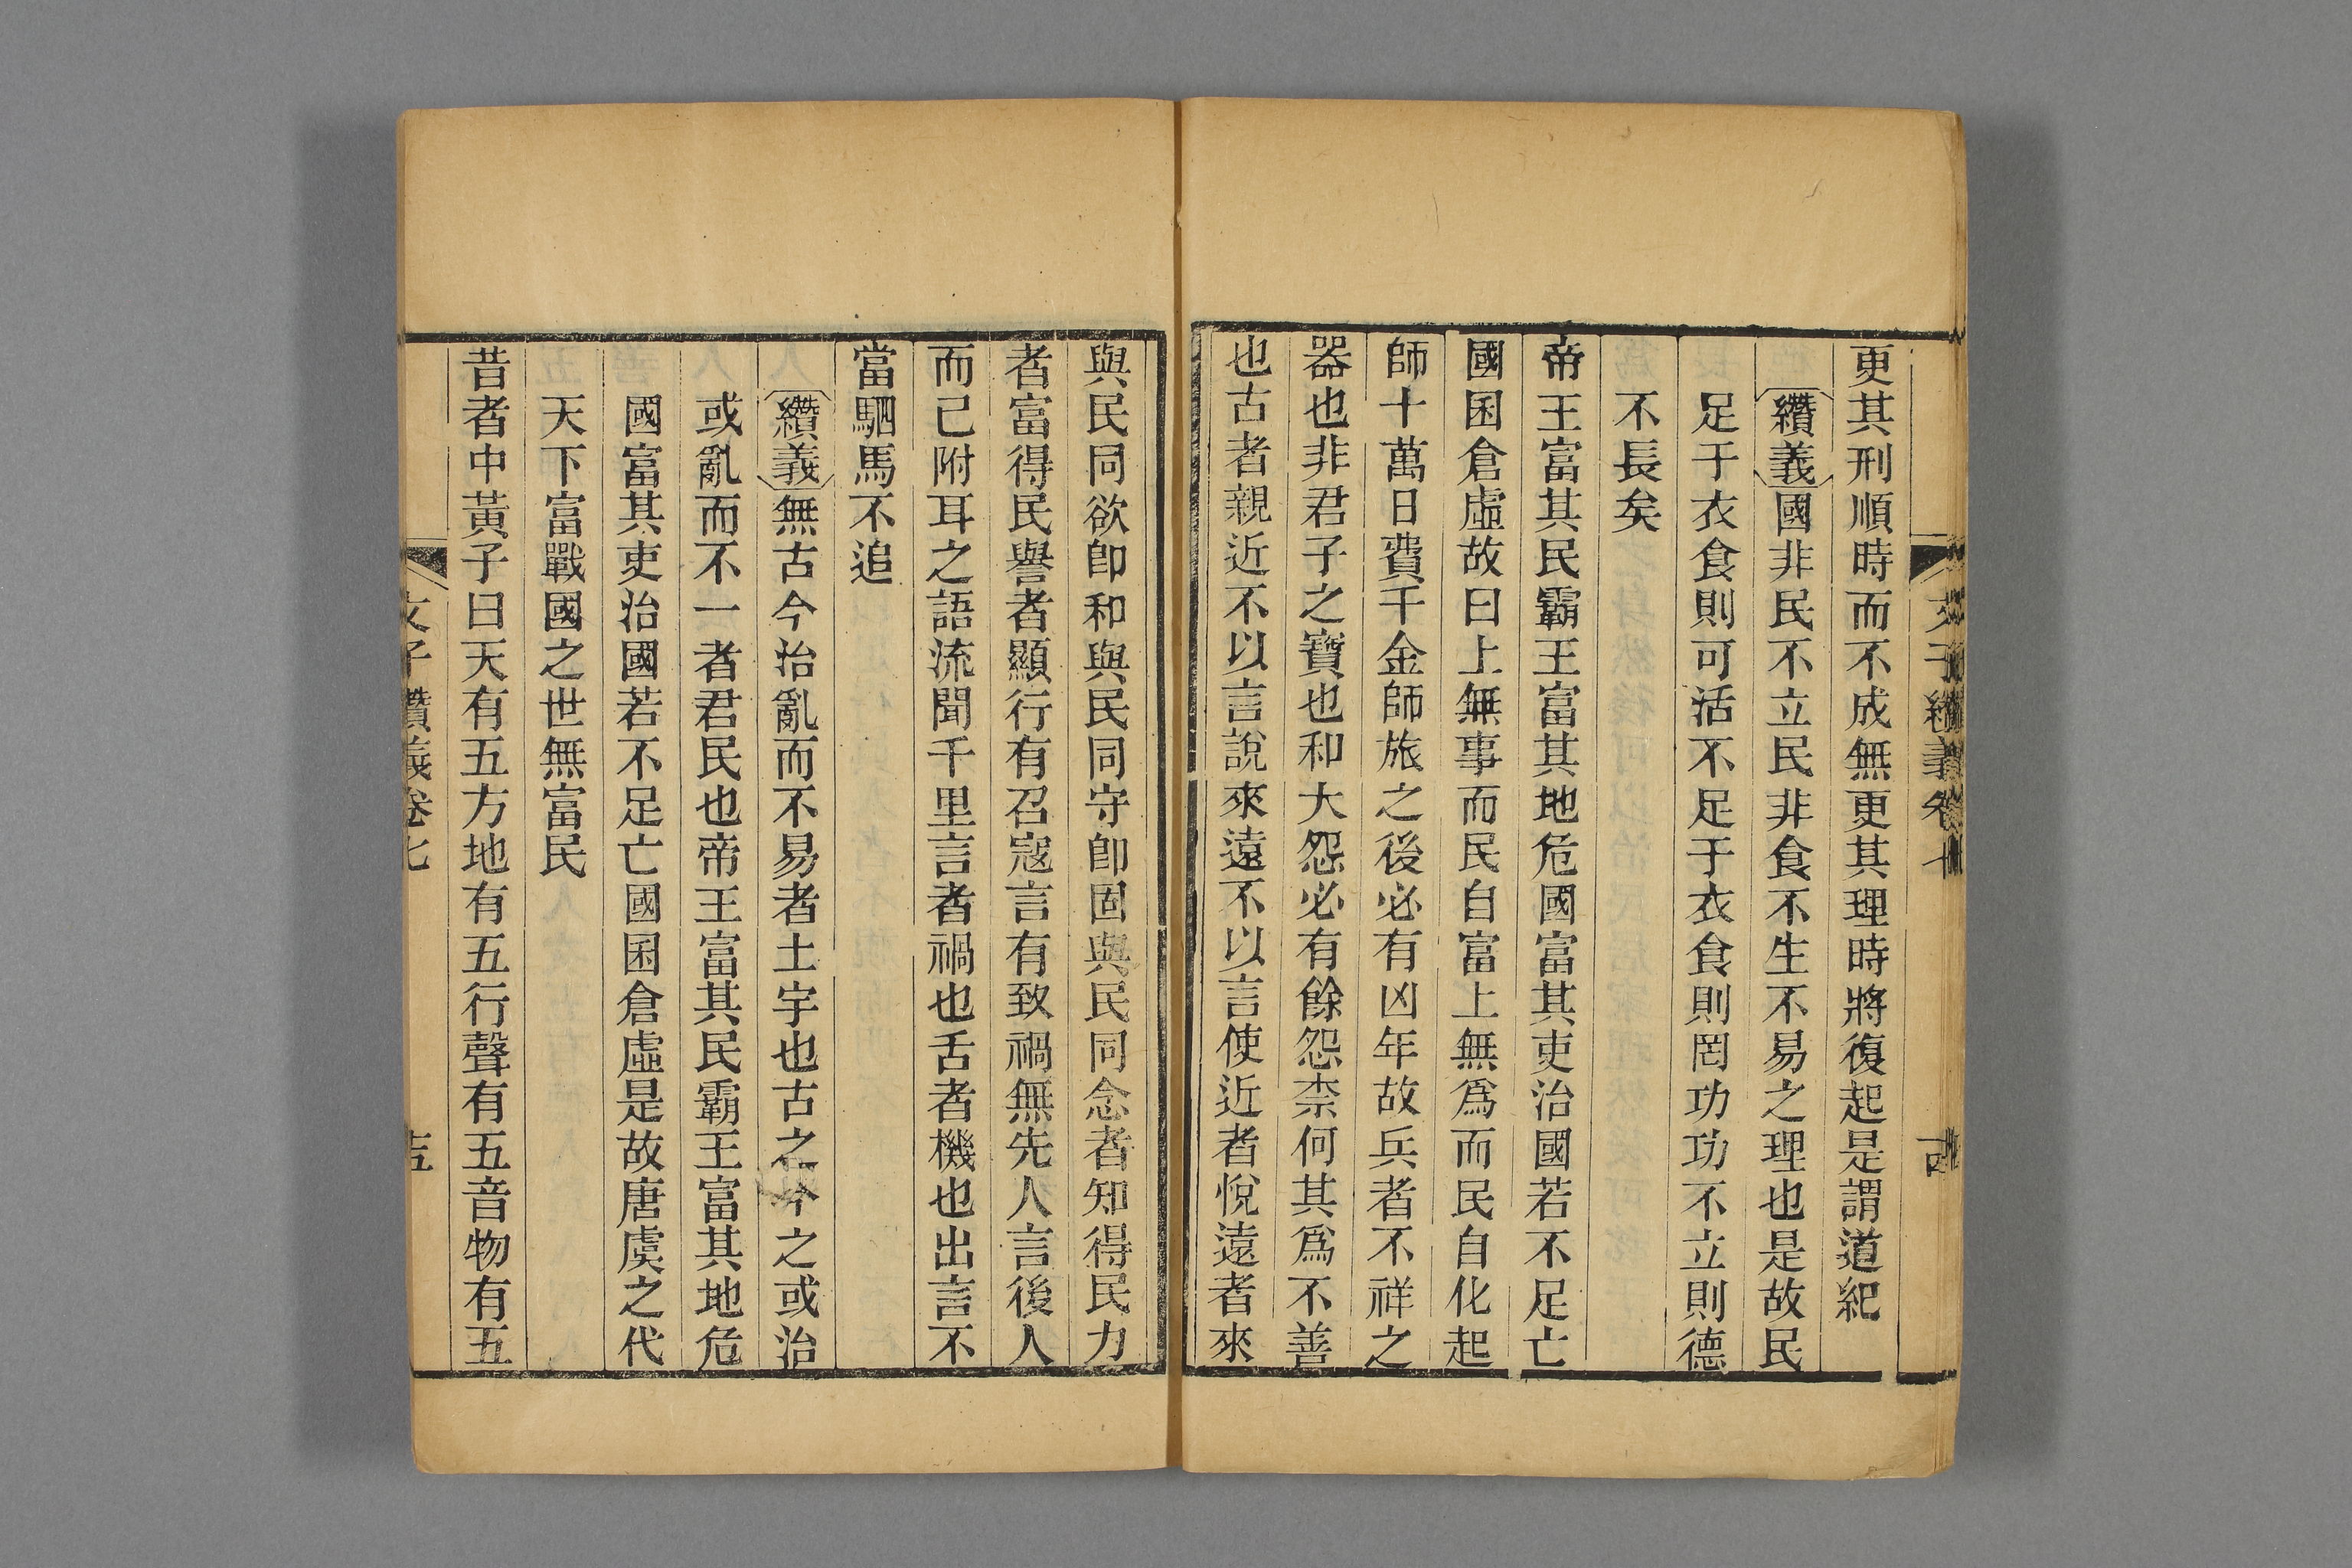 更其刑順時而不成無更其理時將復起是謂道紀
纘義國非民不立民非食不生不易之理也是故民
足于衣食則可活不足于衣食則罔功功不立則德
不長矣
帝王富其民霸王富其地危國富其吏治國若不足亡
國困倉虛故曰上無事而民自富上無爲而民自化起
師十萬日費千金師旅之後必有凶年故兵者不祥之
器也非君子之寶也和大怨必有餘怨柰何其爲不善
也古者親近不以言說來遠不以言使近者悅遠者來
與民同欲卽和與民同守卽固與民同念者知得民力
者富得民譽者顯行有召寇言有致禍無先人言後人
而已附耳之語流聞千里言者禍也舌者機也出言不
當駟馬不追
纘義無古今治亂而不易者土宇也古之今之或治
或亂而不一者君民也帝王富其民霸王富其地危
國富其吏治國若不足亡國困倉虛是故唐虞之代
天下富戰國之世無富民
昔者中黃子曰天有五方地有五行聲有五音物有五
文子纘義卷七